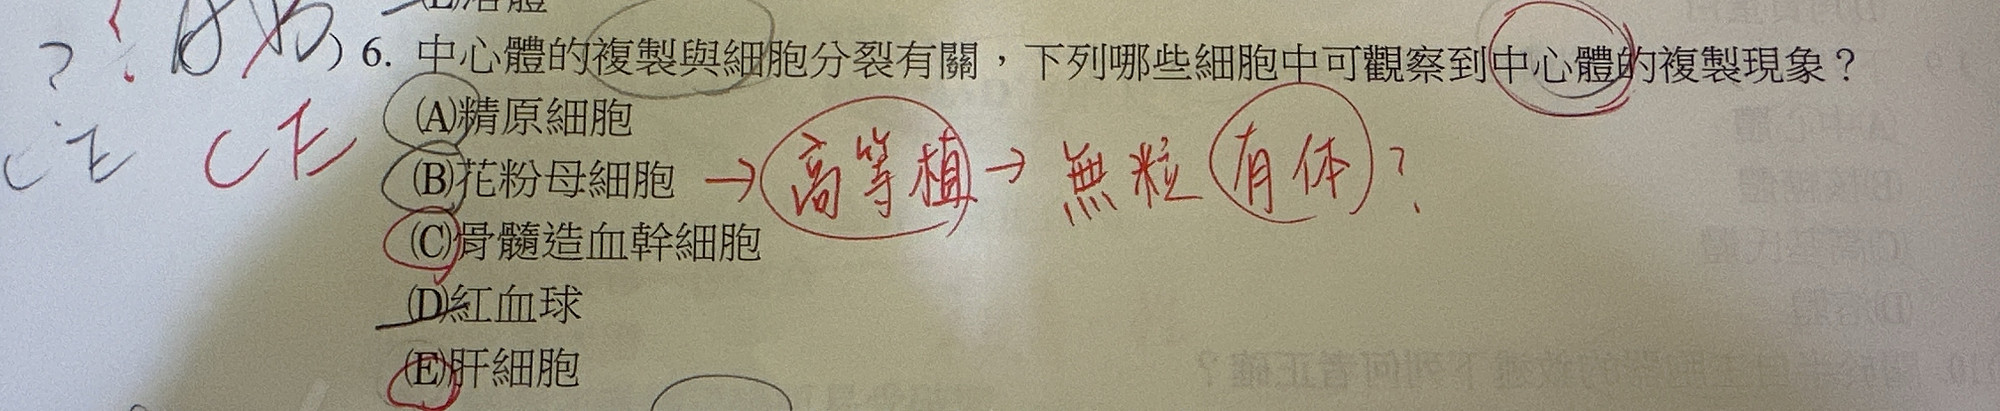 6. 中心體的複製與細胞分裂有關，下列哪些細胞中可觀察到中心體的複製現象？
(A)精原細胞
(B)花粉母細胞 → 高等植 → 無粒 有体？
CE CE
(C)骨髓造血幹細胞
(D)紅血球
(E)肝細胞